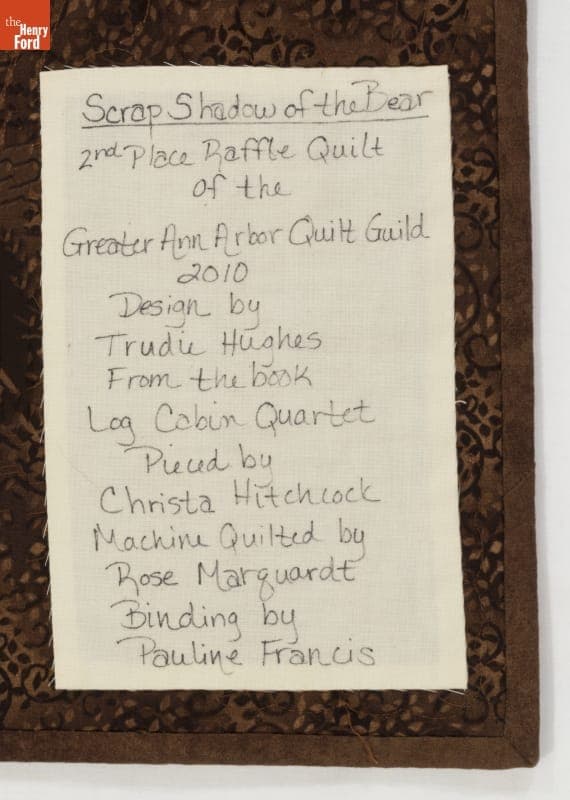 the
Henry
Ford
Scrap Shadow of the Bear
2nd Place Raffle Quilt
of the
Greater Ann Arbor Quilt Guild
2010
Design by
Trudie Hughes
From the book
Log Cabin Quartet
Pieced by
Christa Hitchcock
Machine Quilted by
Rose Marquardt
Binding by
Pauline Francis